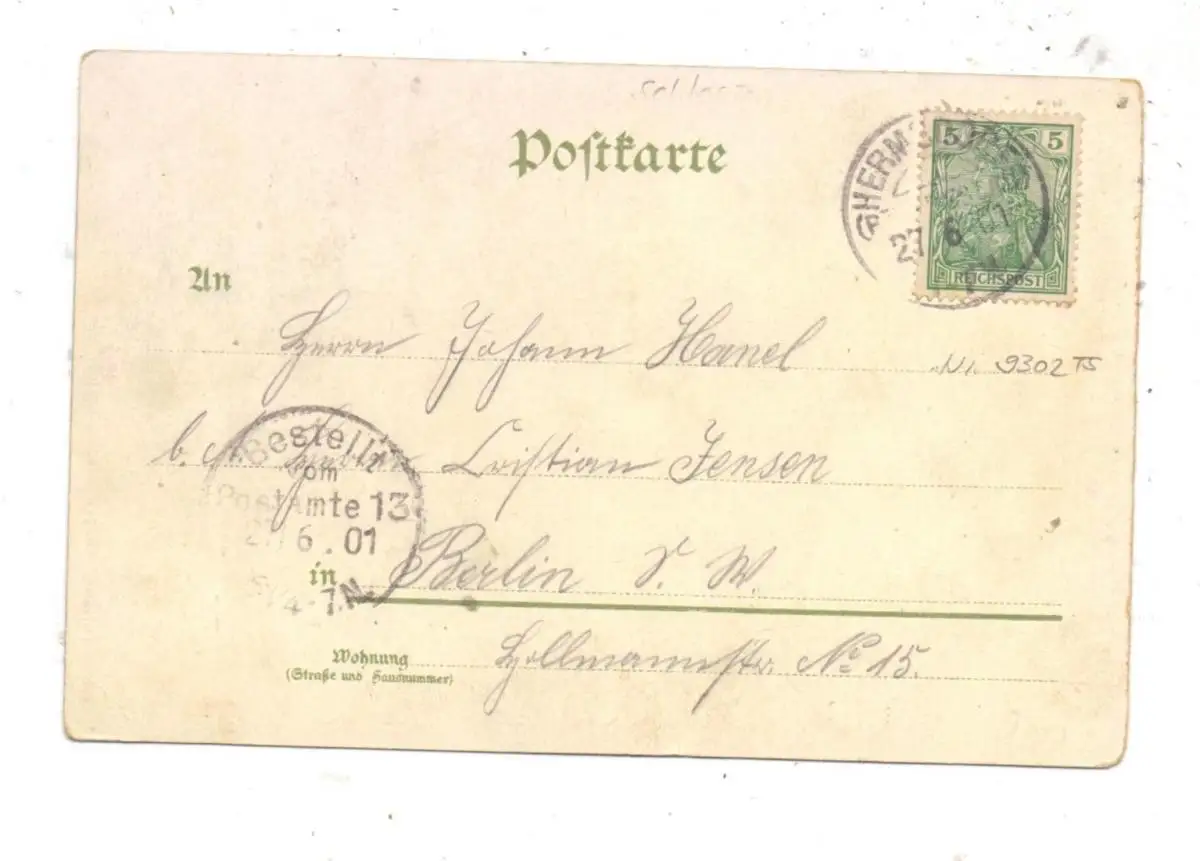 Postkarte
5 5
REICHSPOST
HERM
27 6 01
An
Herrn Johann Hanel
No. 9302 TS
b. Cristian Jensen
Bestellt
vom
PostAmte 13
6.01
in Berlin S. W.
4-7.N.
Wohnung Hollmannstr. No 15.
(Straße und Hausnummer)